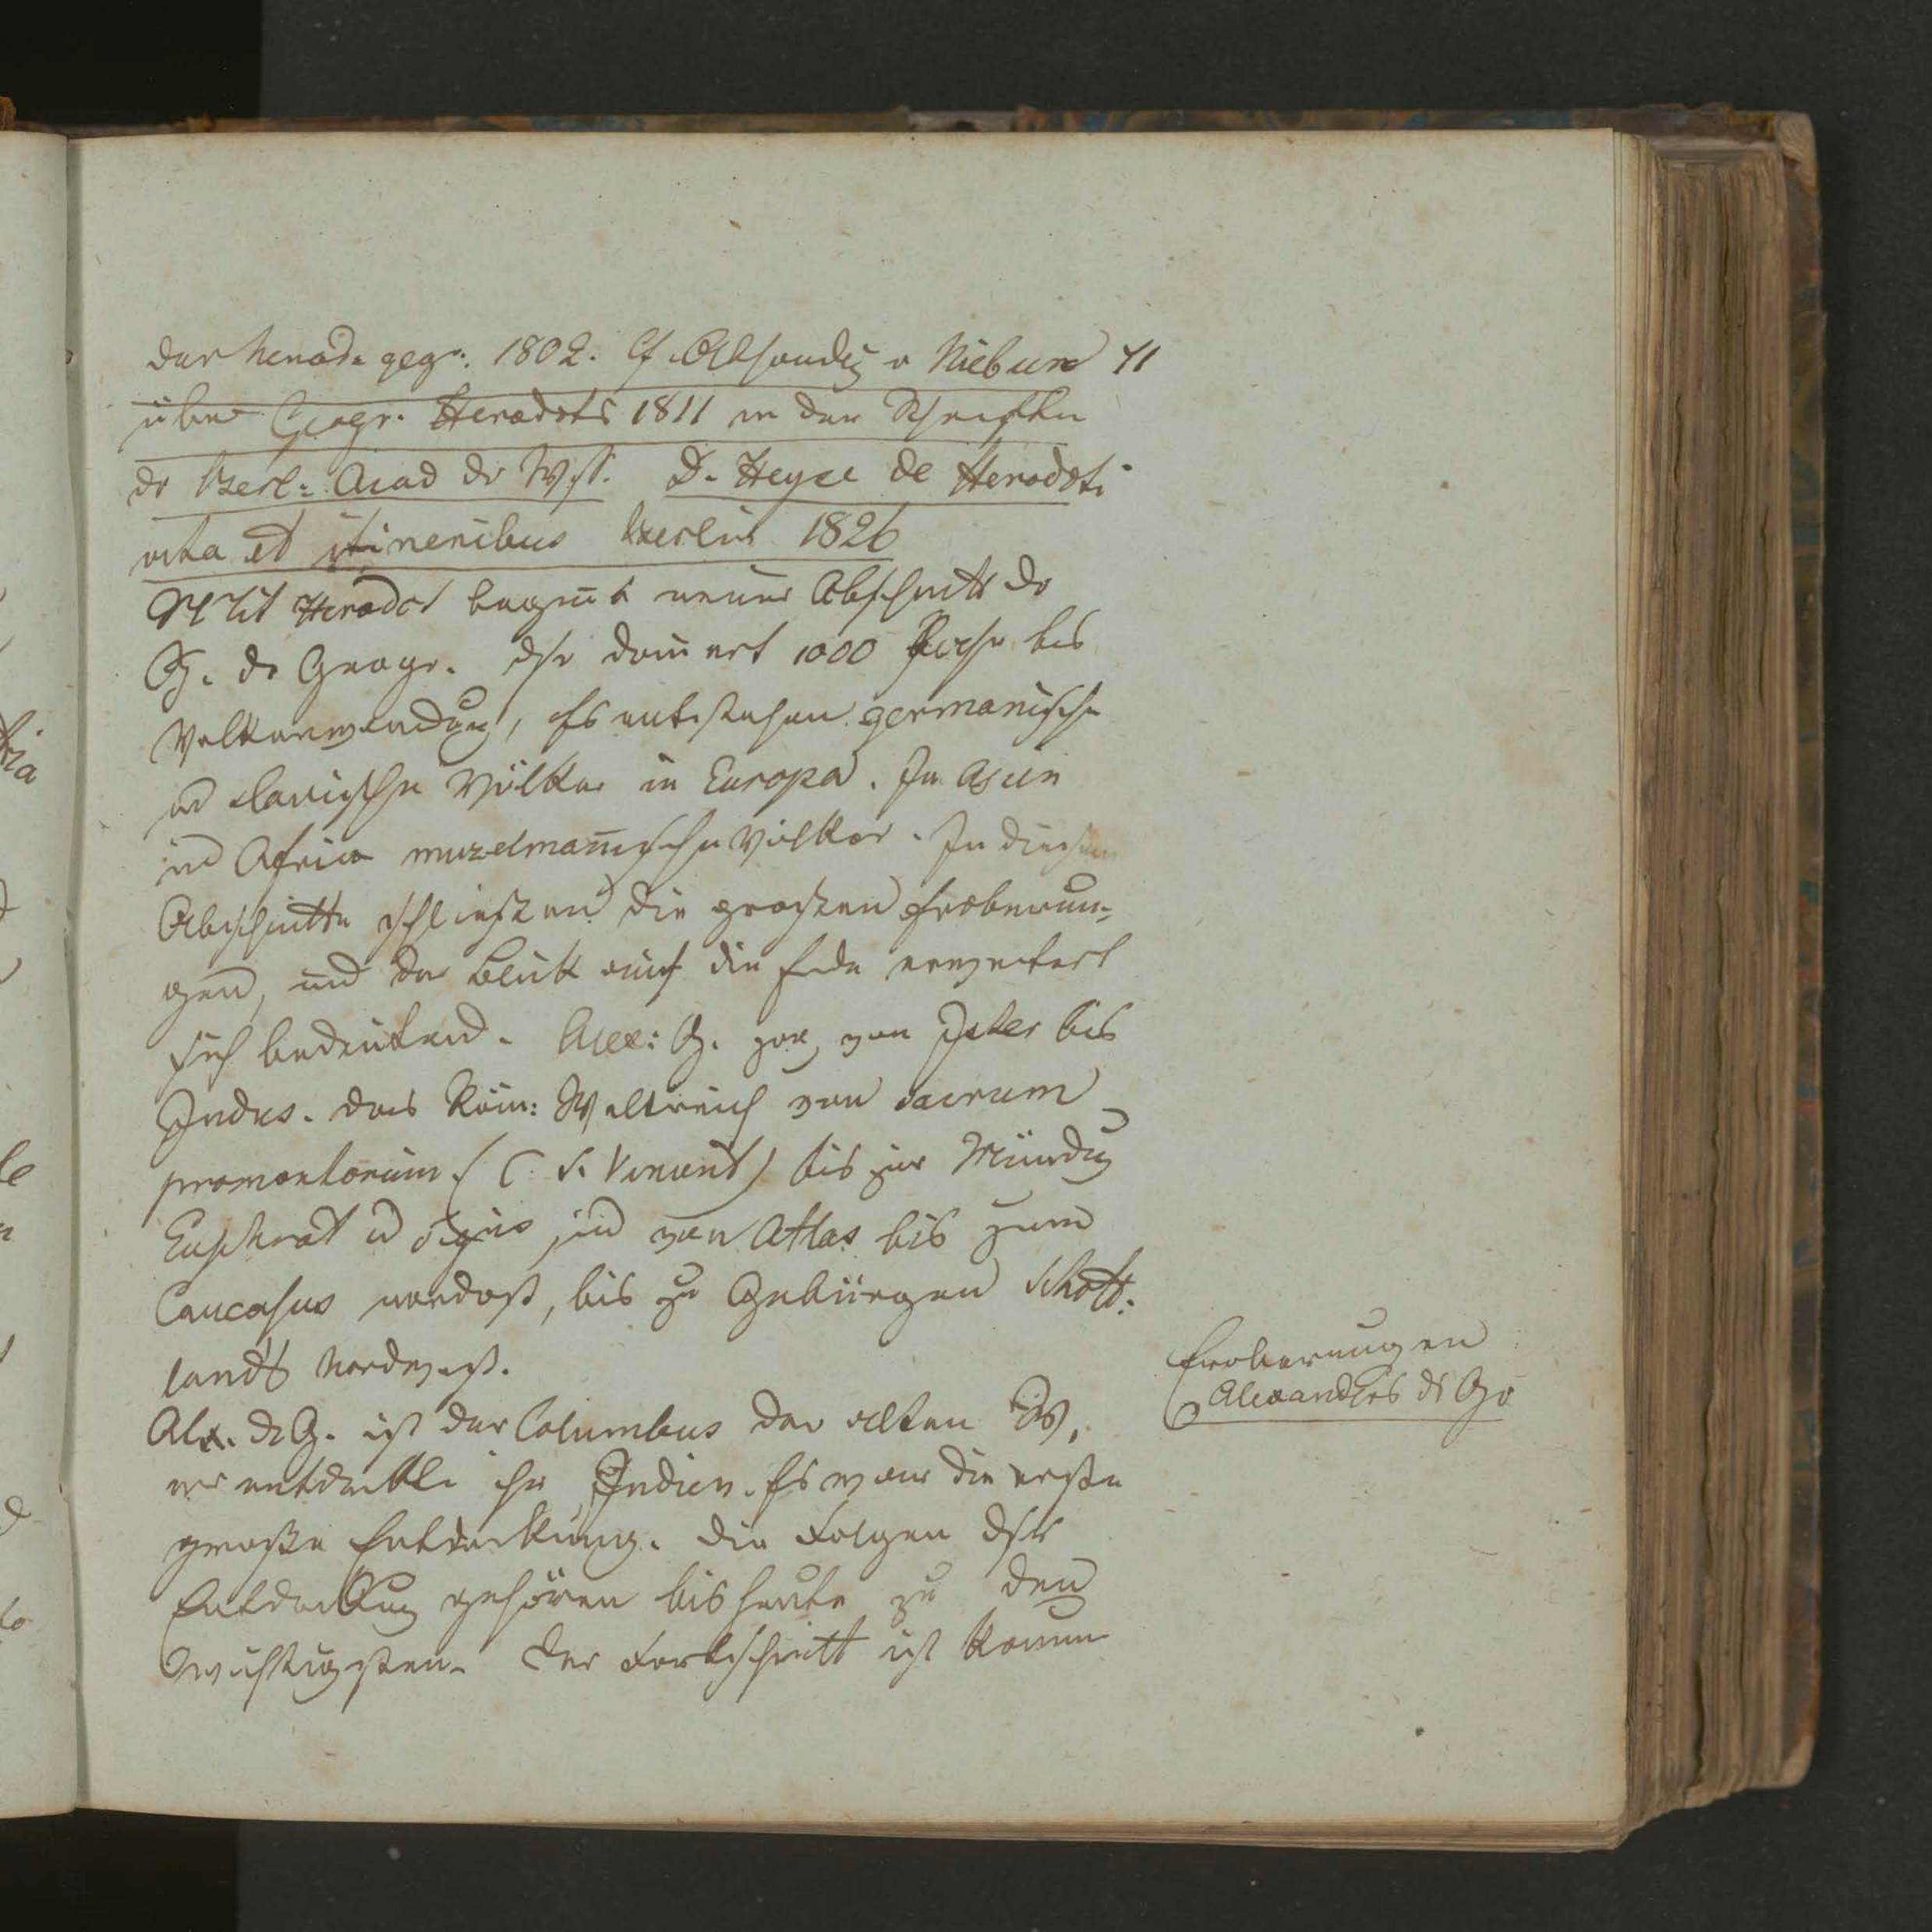 der herod. geogr. 1802. Cf. Abhandlg v Niebur 41
über Geogr. Herodots 1811 in den Schriften
dr Berl: Acad dr Wss. D. Heyse de Herodoti
vita et itineribus Berlin 1826
Mit Herodot beginnt neuer Abschnitt dr
G. dr Geogr. dsr dauert 1000 Jahre bis
Völkerwandrung, Es entstehen germanische
und slavische Völker in Europa. In Asien
und Africa muzelmanische Völker. In diesem
Abschnitte schließen die großen Eroberun-
gen, und der Blick auf die Erde erweitert
sich bedeutend. Alex: G. zog von Ister bis
Indus. das Röm: Weltreich von sacrum
promontorium (C. S. Vincent) bis zur Mündug
Euphrat u Tigris und von Atlas bis zum
Caucasus nordost, bis zu Gebürgen Schott-
lands Nordwest.
Eroberungen
Alexanders ds Gr
Alx. dr G. ist der Columbus der alten W,
er entdeckte ihr Indien. Es war die erste
große Entdeckung. Die Folgen dsr
Entdeckug gehören bis heute zu den
wichtigsten. Der Fortschritt ist kaum